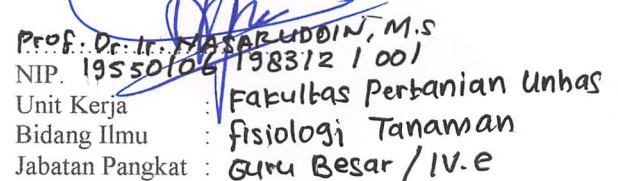 Prof. Dr. Ir. NASARUDDIN, M.S
NIP. 19550106 198312 1 001
Unit Kerja : Fakultas Pertanian Unhas
Bidang Ilmu : fisiologi Tanaman
Jabatan Pangkat : Guru Besar / IV.e